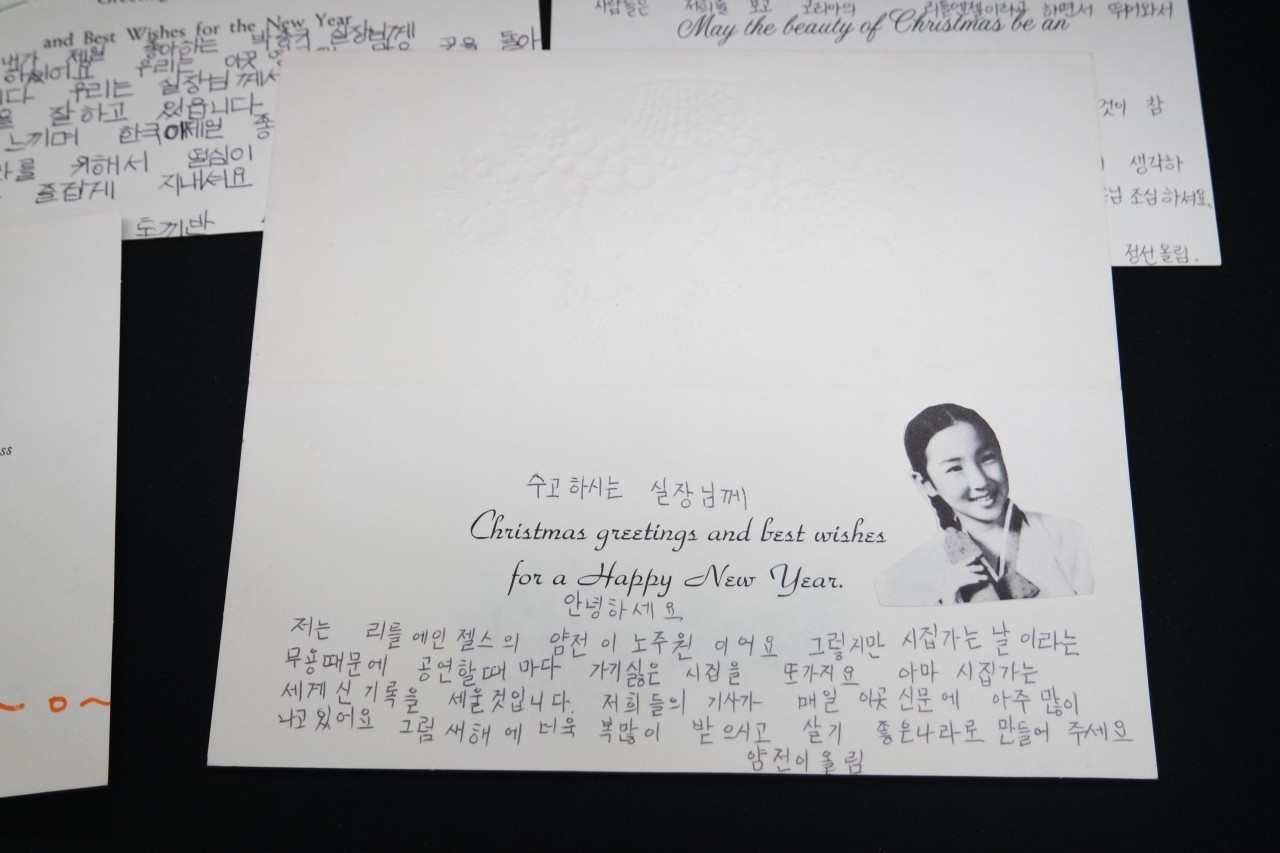 Greeting
and Best Wishes for the New Year
내가 제일 좋아하는 실장님께
하에어요 우리는 이곳
우리는 실장님께서
잘하고 있읍니다
느끼며 한국에제일 좋
위해서 열심이
즐겁게 지내셔요
토끼반
사람들은 저희를 보고 코리아의 리틀엔젤이라고 하면서 뛰어와서
May the beauty of Christmas be an
것이 참
생각하
님 조심하셔요.
정선올림.
ss
수고하시는 실장님께
Christmas greetings and best wishes
for a Happy New Year.
안녕하세요
저는 리틀에인젤스의 얌전이 노주원 이어요 그렇지만 시집가는 날 이라는
무용때문에 공연할때 마다 가기싫은 시집을 또가지요 아마 시집가는
세계신기록을 세울것입니다. 저희들의 기사가 매일 이곳신문에 아주 많이
나고있어요 그럼 새해에 더욱 복많이 받으시고 살기 좋은나라로 만들어 주세요
얌전이올림